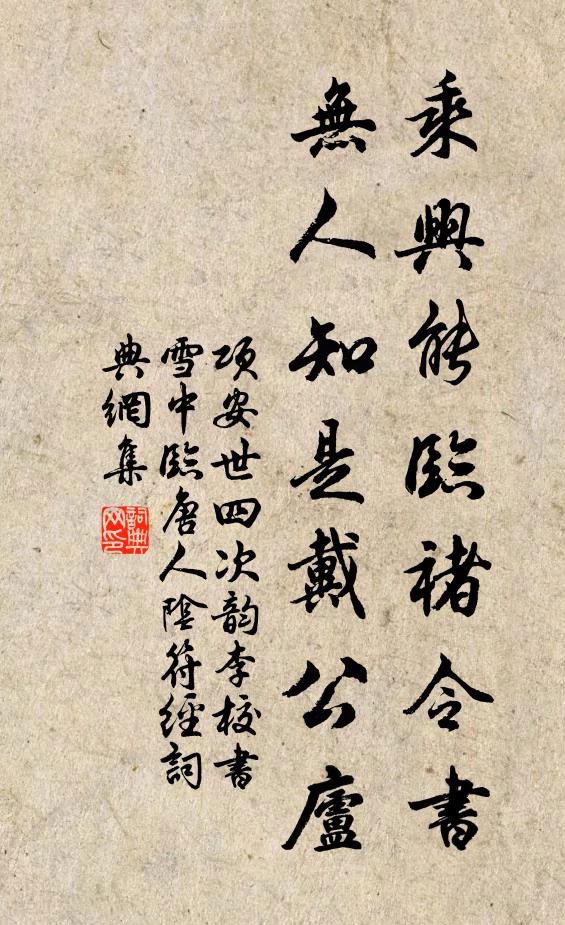 乘興能臨褚令書
無人知是戴公廬
項安世四次韵李校書
雪中臨唐人陰符經詞
典網集
詞典网印